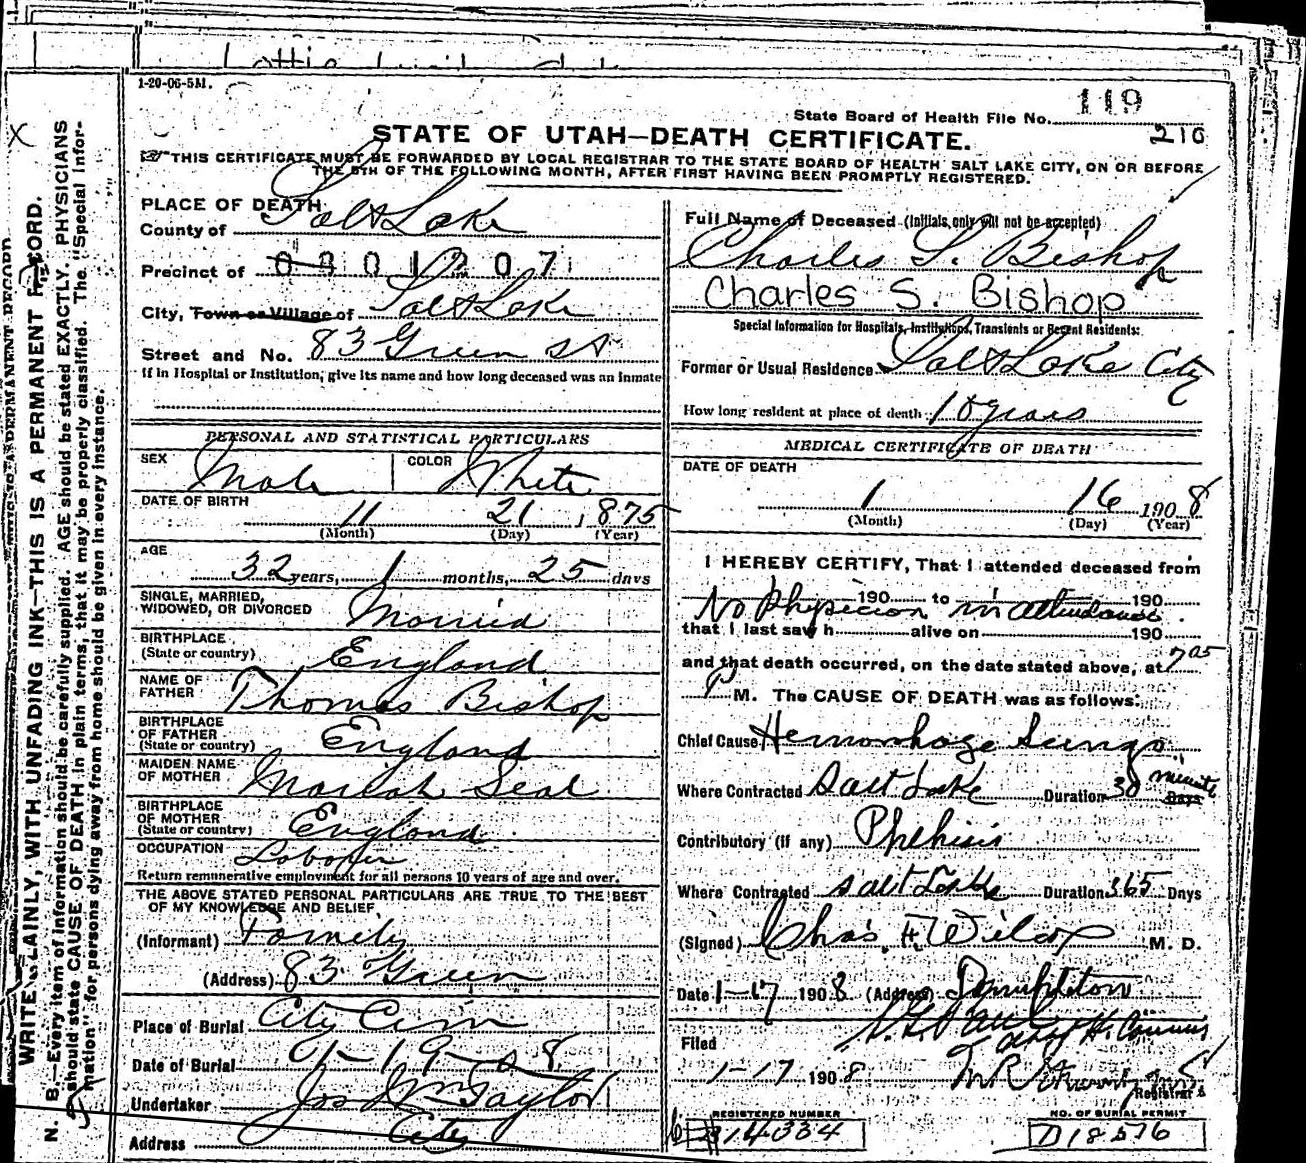 1-20-06-5M.
State Board of Health File No. 119
216
STATE OF UTAH—DEATH CERTIFICATE.
THIS CERTIFICATE MUST BE FORWARDED BY LOCAL REGISTRAR TO THE STATE BOARD OF HEALTH SALT LAKE CITY, ON OR BEFORE
THE 5TH OF THE FOLLOWING MONTH, AFTER FIRST HAVING BEEN PROMPTLY REGISTERED.
PLACE OF DEATH
County of Salt Lake
Precinct of 0301207
City, Town or Village of Salt Lake
Street and No. 83 Green St
If in Hospital or Institution, give its name and how long deceased was an inmate
PERSONAL AND STATISTICAL PARTICULARS
SEX Male COLOR White
DATE OF BIRTH
11 21 1875
(Month) (Day) (Year)
AGE
32 years, 1 months, 25 days
SINGLE, MARRIED,
WIDOWED, OR DIVORCED Married
BIRTHPLACE
(State or country) England
NAME OF
FATHER Thomas Bishop
BIRTHPLACE
OF FATHER
(State or country) England
MAIDEN NAME
OF MOTHER Mariah Seal
BIRTHPLACE
OF MOTHER
(State or country) England
OCCUPATION Laborer
Return remunerative employment for all persons 10 years of age and over.
THE ABOVE STATED PERSONAL PARTICULARS ARE TRUE TO THE BEST
OF MY KNOWLEDGE AND BELIEF
(Informant) Family
(Address) 83 Green
Place of Burial City Cem
Date of Burial 01-19-08
Undertaker Jos Wm Taylor
Address City
Full Name of Deceased (Initials only will not be accepted)
Charles S. Bishop
Charles S. Bishop
Special Information for Hospitals, Institutions, Transients or Recent Residents:
Former or Usual Residence Salt Lake City
How long resident at place of death 18 years
MEDICAL CERTIFICATE OF DEATH
DATE OF DEATH
1 16 1908
(Month) (Day) (Year)
I HEREBY CERTIFY, That I attended deceased from
190 to 190
No Physician in attendance
that I last saw h alive on 190
and that death occurred, on the date stated above, at 7 05
P M. The CAUSE OF DEATH was as follows:
Chief Cause Hemorrhage Lungs
Where Contracted Salt Lake Duration 30 minute Days
Contributory (if any) Phthisis
Where Contracted Salt Lake Duration 365 Days
(Signed) Chas. H. Wilcox M. D.
Date 1-17 1908 (Address)
Filed
1-17 1908
Registrar
REGISTERED NUMBER
14334
NO. OF BURIAL PERMIT
D18576
WRITE PLAINLY, WITH UNFADING INK—THIS IS A PERMANENT RECORD.
N. B.—Every item of information should be carefully supplied. AGE should be stated EXACTLY. PHYSICIANS
should state CAUSE OF DEATH in plain terms, that it may be properly classified. The "Special Infor-
mation" for persons dying away from home should be given in every instance.